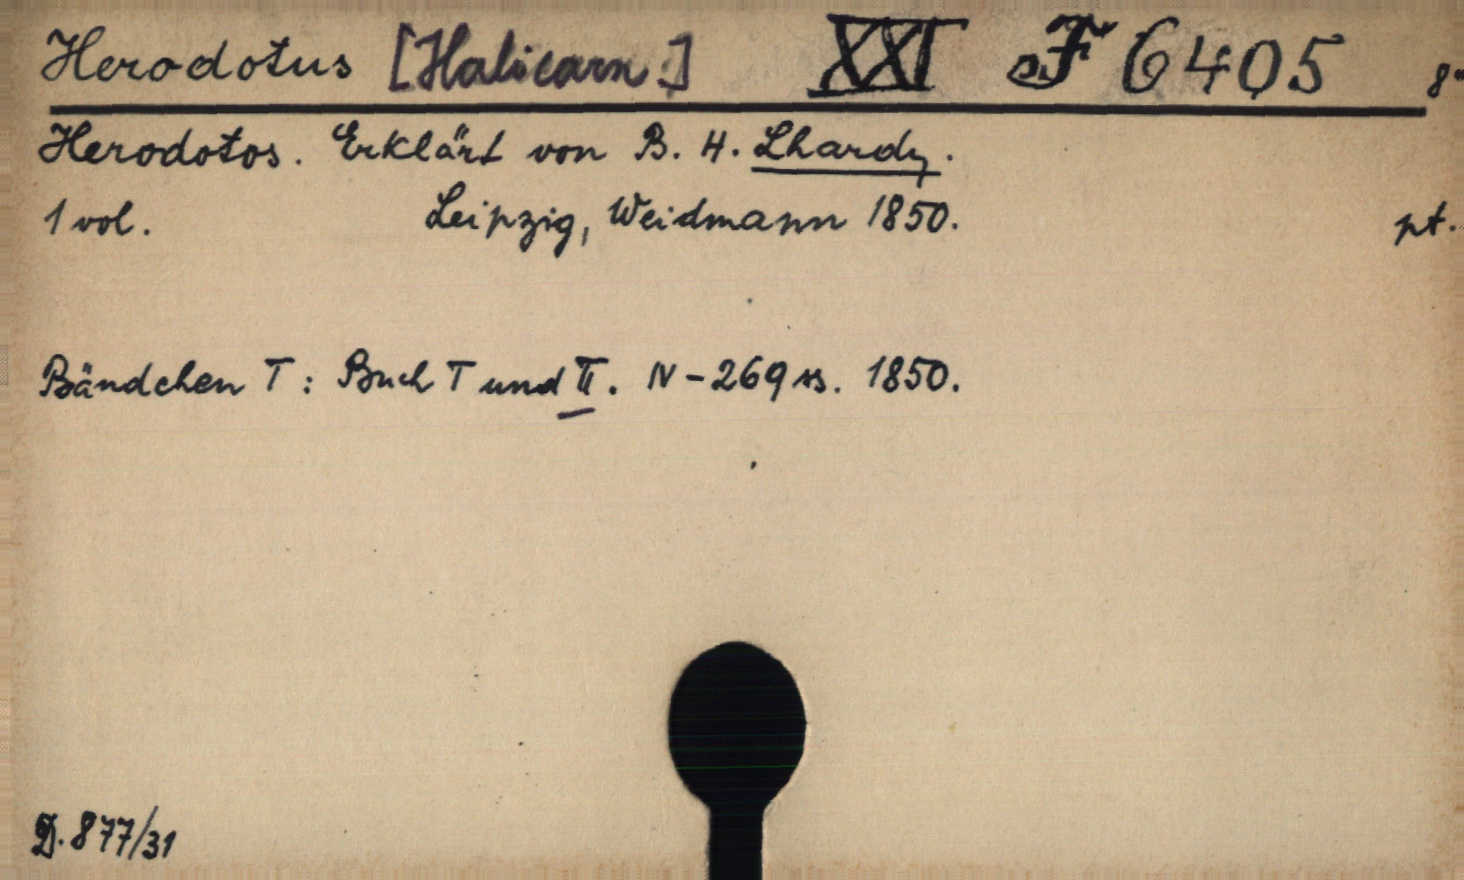 Herodotus [Halicarn.] XXI F 6405 8°
Herodotos. Erklärt von B. H. Lhardy.
1 vol. Leipzig, Weidmann 1850. pt.
Bändchen I: Buch I und II. IV-269 ss. 1850.
D. 877/31